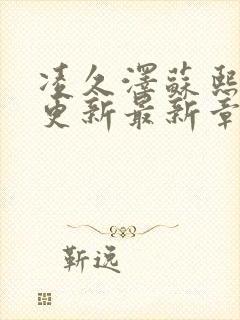 凌久澤蘇熙
更新最新章
靳逸